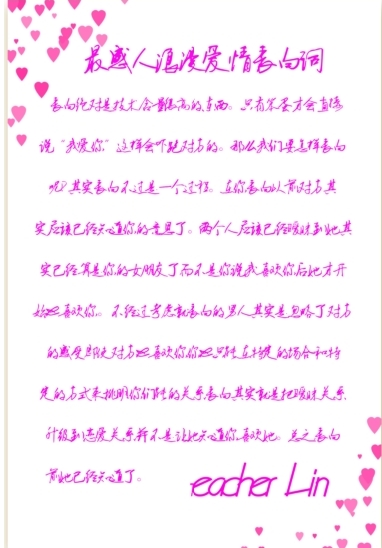 最感人浪漫爱情表白词
表白绝对是技术含量很高的东西。只有笨蛋才会直接
说“我爱你”这样会吓跑对方的。那么我们要怎样表白
呢?其实表白不过是一个过程。在你表白以前对方其
实应该已经知道你的意思了。两个人应该已经暧昧到她其
实已经算是你的女朋友了而不是你说我喜欢你后她才开
始喜欢你。不经过考虑就表白的男人其实是忽略了对方
的感受即使对方喜欢你你也只能在特定的场合和特
定的方式来挑明你们的关系表白其实就是把暧昧关系
升级到恋爱关系并不是让她知道你喜欢她。总之表白
前她已经知道了。
eacher Lin